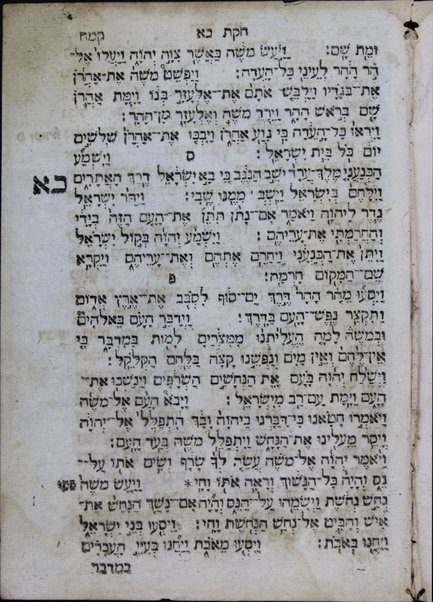 חקת כא קמח
וּמֵת שָׁם׃ וַיַּעַשׂ מֹשֶׁה כַּאֲשֶׁר צִוָּה יְהוָֹה וַיַּעֲלוּ אֶל־
הֹר הָהָר לְעֵינֵי כָּל־הָעֵדָה׃ וַיַּפְשֵׁט מֹשֶׁה אֶת־אַהֲרֹן
אֶת־בְּגָדָיו וַיַּלְבֵּשׁ אֹתָם אֶת־אֶלְעָזָר בְּנוֹ וַיָּמָת אַהֲרֹן
שָׁם בְּרֹאשׁ הָהָר וַיֵּרֶד מֹשֶׁה וְאֶלְעָזָר מִן־הָהָר׃
וַיִּרְאוּ כָּל־הָעֵדָה כִּי גָוַע אַהֲרֹן וַיִּבְכּוּ אֶת־אַהֲרֹן שְׁלֹשִׁים
יוֹם כֹּל בֵּית יִשְׂרָאֵל׃ ס וַיִּשְׁמַע
כא הַכְּנַעֲנִי מֶלֶךְ־עֲרָד יֹשֵׁב הַנֶּגֶב כִּי בָּא יִשְׂרָאֵל דֶּרֶךְ הָאֲתָרִים
וַיִּלָּחֶם בְּיִשְׂרָאֵל וַיִּשְׁבְּ מִמֶּנּוּ שֶׁבִי׃ וַיִּדַּר יִשְׂרָאֵל
נֶדֶר לַיהוָֹה וַיֹּאמַר אִם־נָתֹן תִּתֵּן אֶת־הָעָם הַזֶּה בְּיָדִי
וְהַחֲרַמְתִּי אֶת־עָרֵיהֶם׃ וַיִּשְׁמַע יְהוָֹה בְּקוֹל יִשְׂרָאֵל
וַיִּתֵּן אֶת־הַכְּנַעֲנִי וַיַּחֲרֵם אֶתְהֶם וְאֶת־עָרֵיהֶם וַיִּקְרָא
שֵׁם־הַמָּקוֹם חָרְמָה׃ פ
וַיִּסְעוּ מֵהֹר הָהָר דֶּרֶךְ יַם־סוּף לִסְבֹב אֶת־אֶרֶץ אֱדוֹם
וַתִּקְצַר נֶפֶשׁ־הָעָם בַּדָּרֶךְ׃ וַיְדַבֵּר הָעָם בֵּאלֹהִים
וּבְמֹשֶׁה לָמָה הֶעֱלִיתֻנוּ מִמִּצְרַיִם לָמוּת בַּמִּדְבָּר כִּי
אֵין לֶחֶם וְאֵין מַיִם וְנַפְשֵׁנוּ קָצָה בַּלֶּחֶם הַקְּלֹקֵל׃
וַיְשַׁלַּח יְהוָֹה בָּעָם אֵת הַנְּחָשִׁים הַשְּׂרָפִים וַיְנַשְּׁכוּ אֶת־
הָעָם וַיָּמָת עַם־רָב מִיִּשְׂרָאֵל׃ וַיָּבֹא הָעָם אֶל־מֹשֶׁה
וַיֹּאמְרוּ חָטָאנוּ כִּי־דִבַּרְנוּ בַיהוָֹה וָבָךְ הִתְפַּלֵּל אֶל־יְהוָֹה
וְיָסֵר מֵעָלֵינוּ אֶת־הַנָּחָשׁ וַיִּתְפַּלֵּל מֹשֶׁה בְּעַד הָעָם׃
וַיֹּאמֶר יְהוָֹה אֶל־מֹשֶׁה עֲשֵׂה לְךָ שָׂרָף וְשִׂים אֹתוֹ עַל־
נֵס וְהָיָה כָּל־הַנָּשׁוּךְ וְרָאָה אֹתוֹ וָחָי׃ * וַיַּעַשׂ מֹשֶׁה
נְחַשׁ נְחֹשֶׁת וַיְשִׂמֵהוּ עַל־הַנֵּס וְהָיָה אִם־נָשַׁךְ הַנָּחָשׁ אֶת־
אִישׁ וְהִבִּיט אֶל־נְחַשׁ הַנְּחֹשֶׁת וָחָי׃ וַיִּסְעוּ בְּנֵי יִשְׂרָאֵל
וַיַּחֲנוּ בְּאֹבֹת׃ וַיִּסְעוּ מֵאֹבֹת וַיַּחֲנוּ בְּעִיֵּי הָעֲבָרִים
במדבר